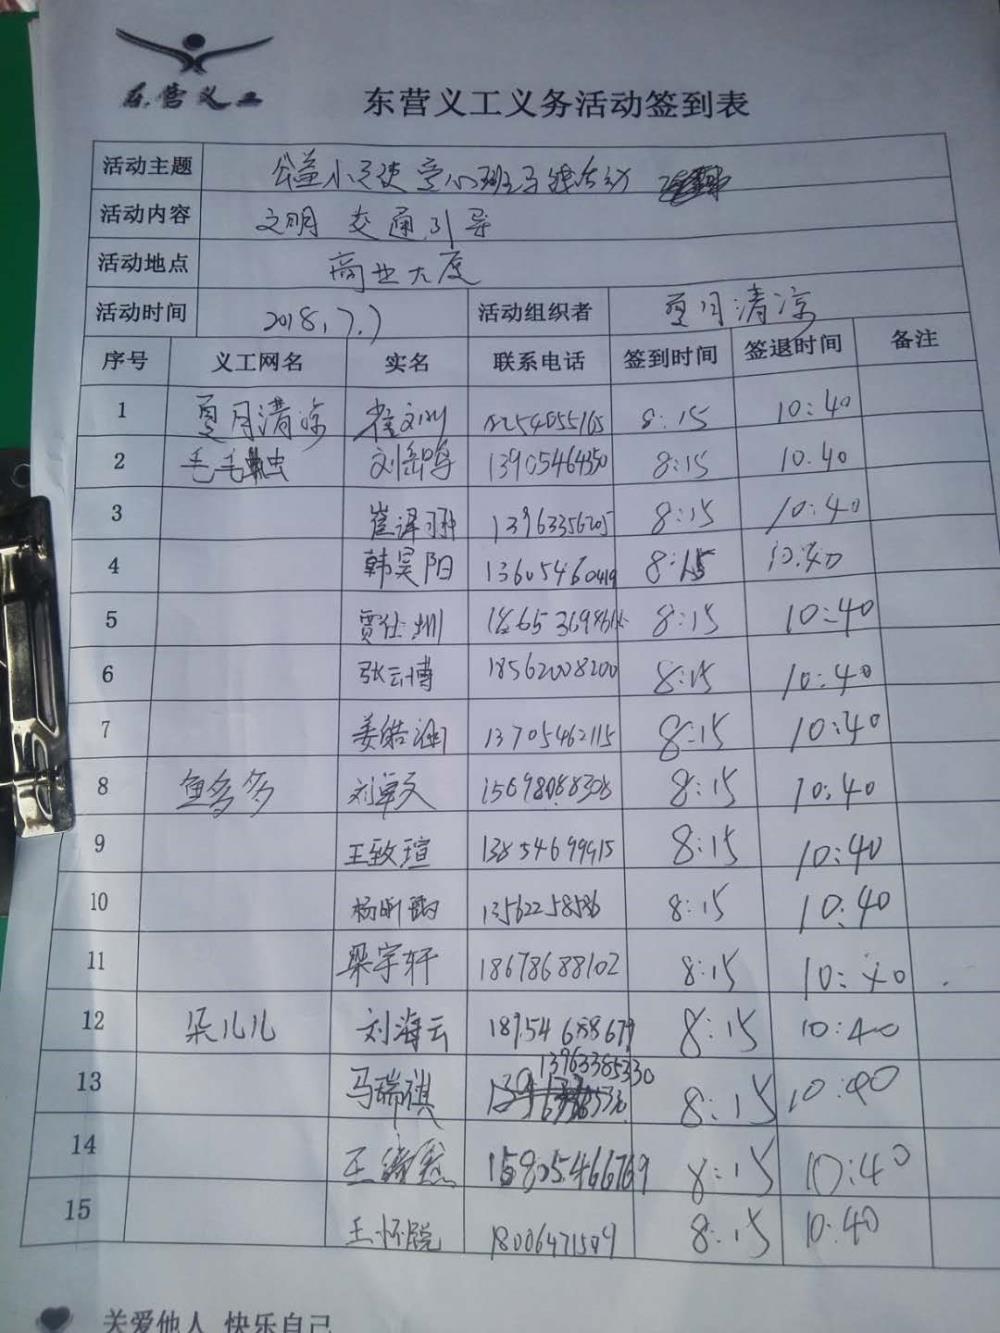 东营义工
东营义工义务活动签到表
活动主题 公益小天使 班 活动
活动内容 文明 交通引导
活动地点 商业大厦
活动时间 2018.7.7 活动组织者 夏月清凉
序号 义工网名 实名 联系电话 签到时间 签退时间 备注
1 夏月清凉 崔 8:15 10:40
2 毛毛虫 刘 13905464350 8:15 10.40
3 崔译 13963356205 8:15 10:40
4 韩昊阳 13605460419 8:15 10:40
5 贾仕 8:15 10:40
6 张云博 18562008200 8:15 10:40
7 姜皓 13705462115 8:15 10:40
8 鱼多多 刘 8:15 10:40
9 王致瑄 8:15 10:40
10 杨昕 13562258586 8:15 10:40
11 梁宇轩 18678688102 8:15 10:40
12 朵儿儿 刘海云 18954658679 8:15 10:40
13 马瑞祺 13963385330 8:15 10:40
14 王 15805466769 8:15 10:40
15 王怀 18006471509 8:15 10:40
关爱他人 快乐自己